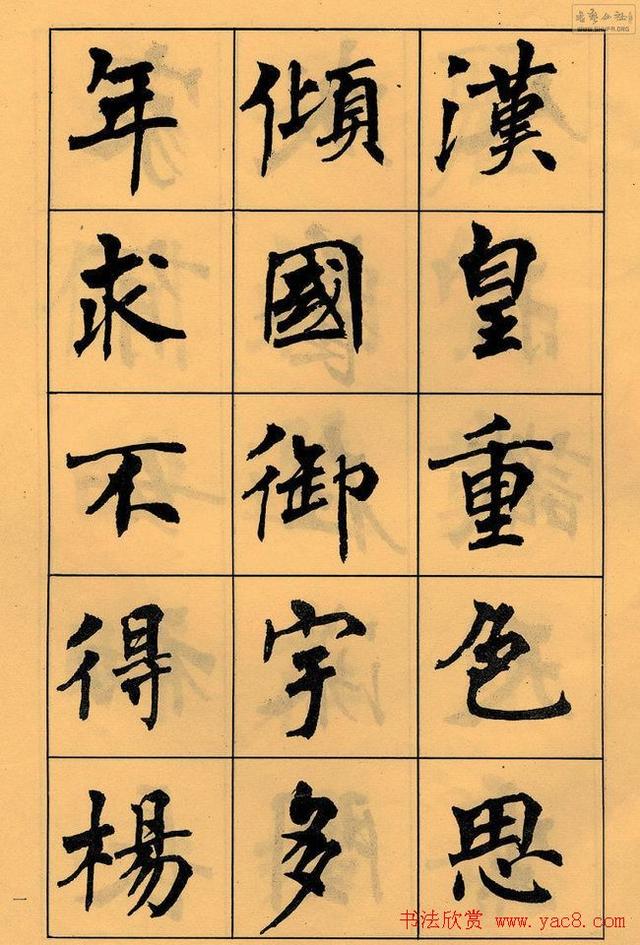 漢皇重色思
傾國御宇多
年求不得楊
一
书法欣赏 www.yac8.com
WWW.SHUFA.ORG